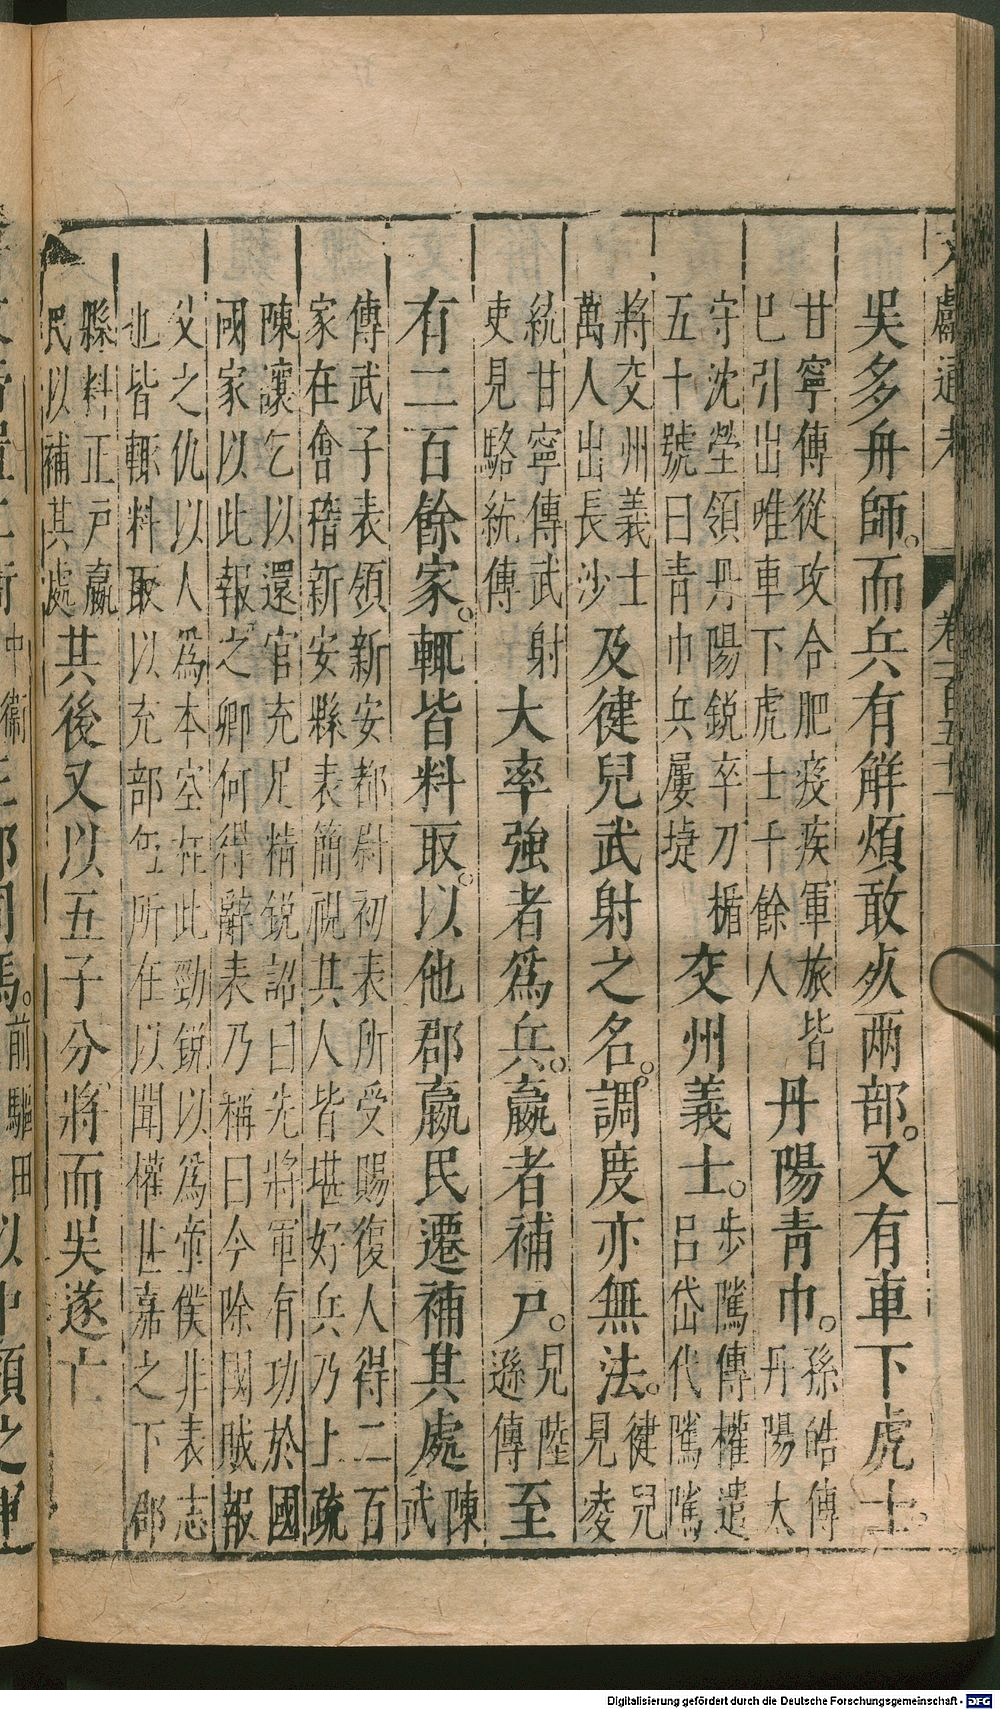 文獻通考 卷一百五十一 一
吳多舟師。而兵有解煩敢死兩部。又有車下虎士。
甘寧傳從攻合肥疫疾軍旅皆
巳引出唯車下虎士千餘人
丹陽青巾。
孫皓傳
丹陽太
守沈瑩領丹陽銳卒刀楯
五十號曰青巾兵屢㨗
交州義士。
步隲傳權遣
呂岱代隲隲
將交州義士
萬人出長沙
及健兒武射之名。調度亦無法。
健兒
見凌
統甘寧傳武射
吏見駱統傳
大率強者爲兵。羸者補戶。
見陸
遜傳
至
有二百餘家。輒皆料取。以他郡羸民遷補其處
陳
武
傳武子表領新安都尉初表所受賜復人得二百
家在會稽新安縣表簡視其人皆堪好兵乃上疏
陳讓乞以還官充足精銳詔曰先將軍有功於國
國家以此報之卿何得辭表乃稱曰今除國賊報
父之仇以人爲本空枉此勁銳以爲僮僕非表志
也皆輒料取以充部伍所在以聞權甚嘉之下郡
縣料正戶羸
民以補其處
其後又以五子分將而吳遂亡
Digitalisierung gefördert durch die Deutsche Forschungsgemeinschaft - DFG